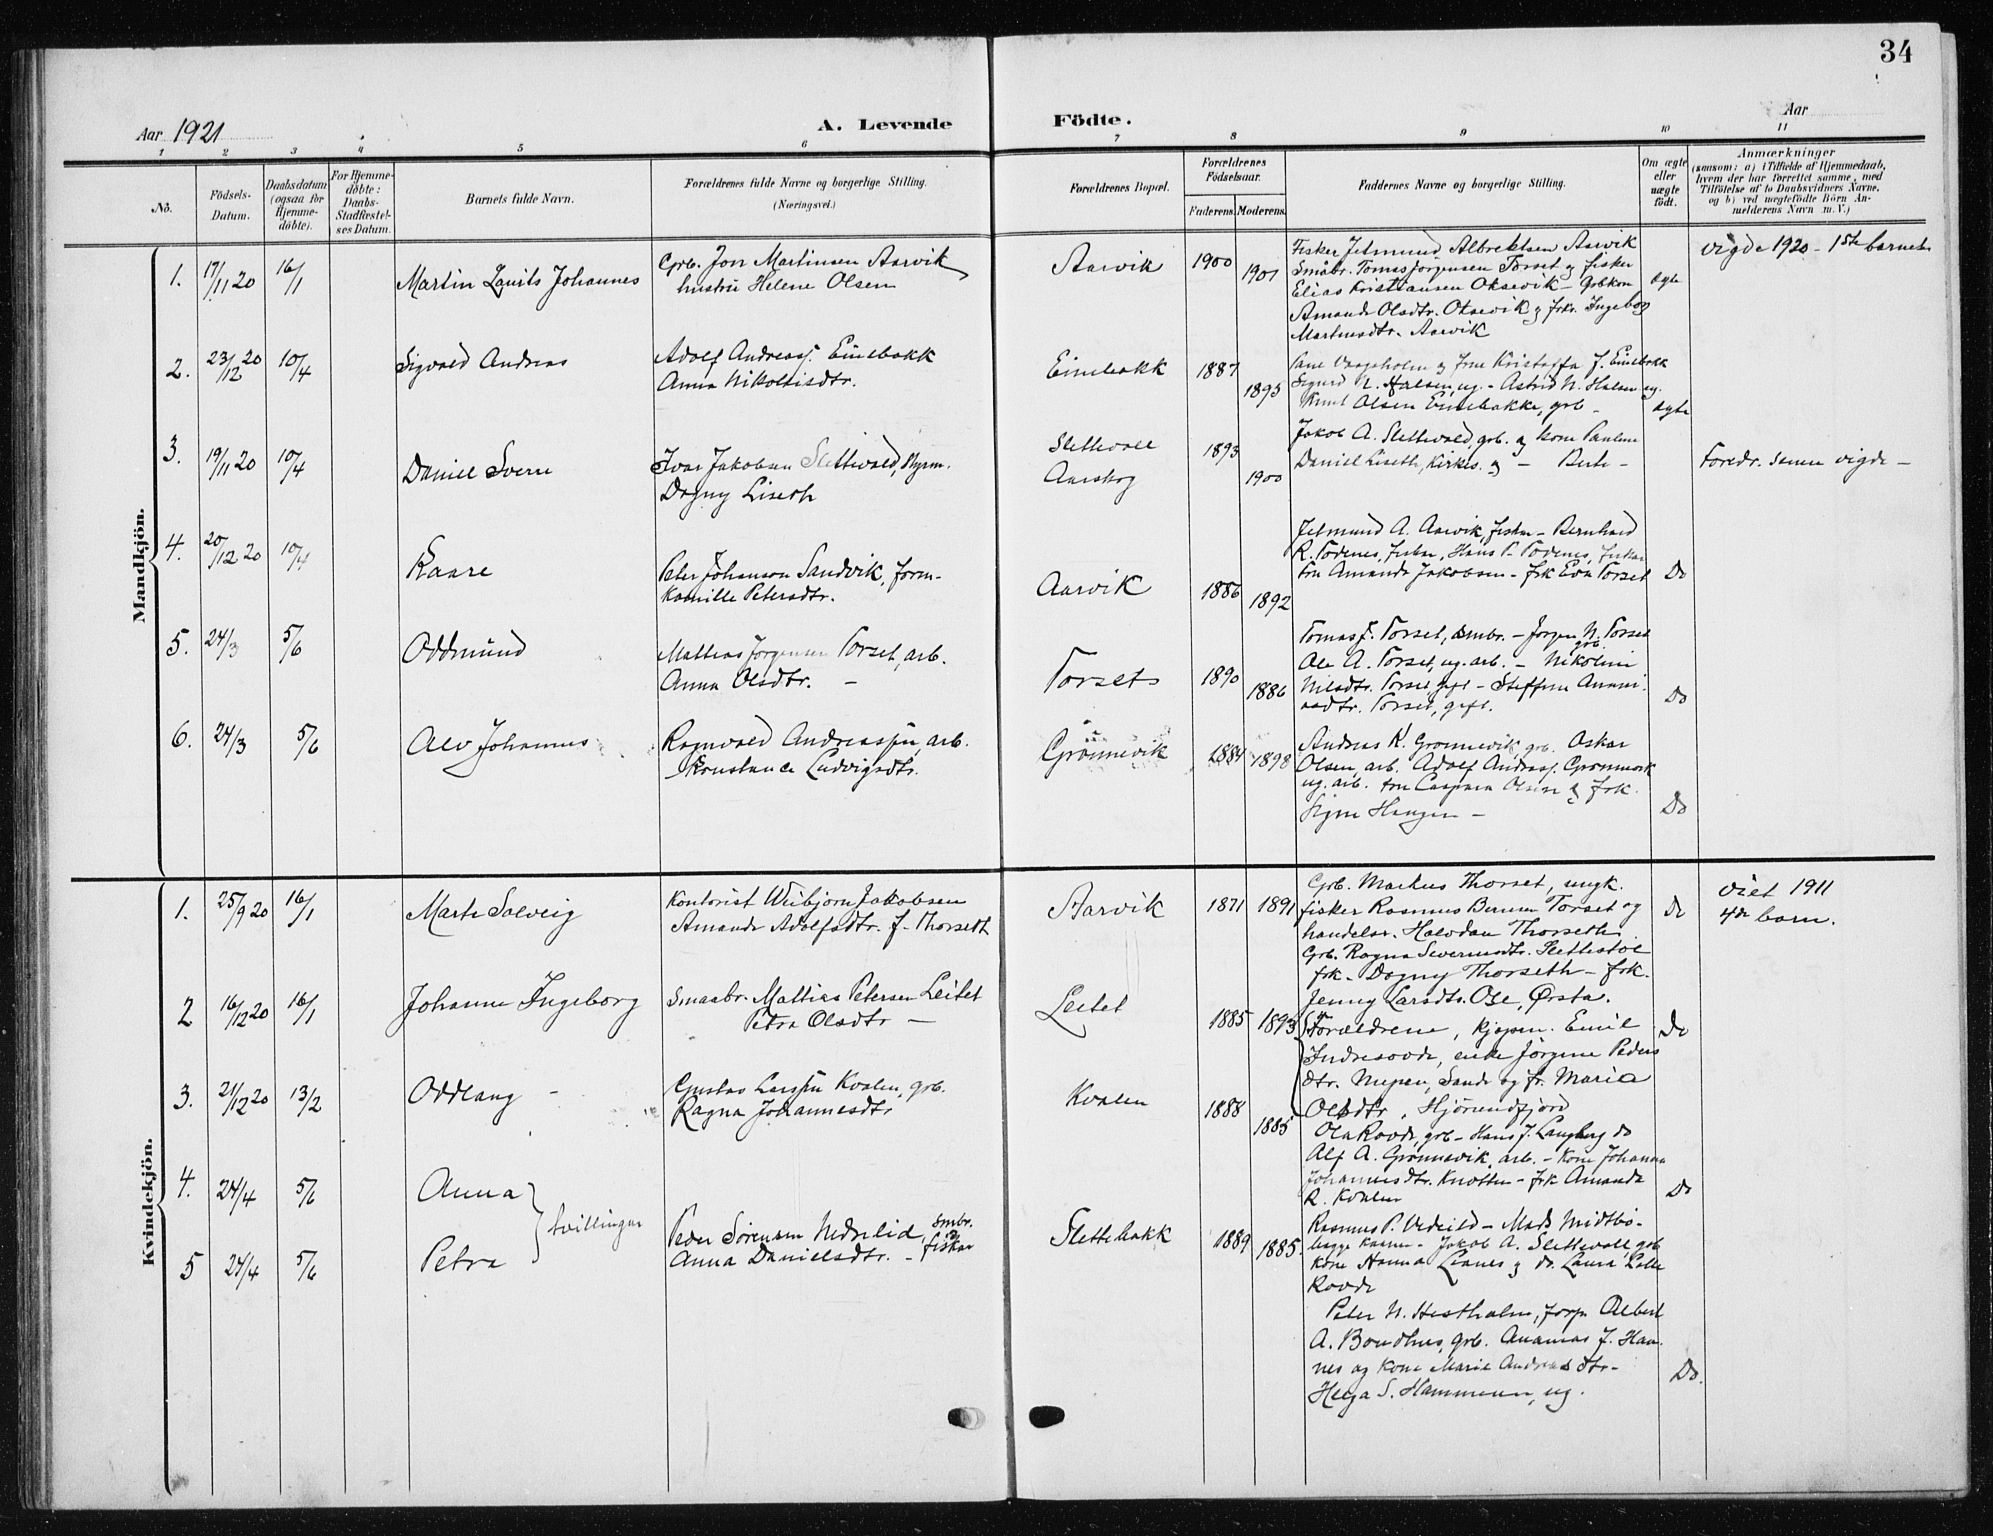 34
Aar 1921
A. Levende Födte.
Aar
1 2 3 4 5 6 7 8 9 10 11
No.
Födsels-Datum.
Daabsdatum (ogsaa for Hjemme-döbte).
For Hjemme-döbte: Daabs-Stadfæstel-ses Datum.
Barnets fulde Navn.
Forældrenes fulde Navne og borgerlige Stilling.
(Næringsvei.)
Forældrenes Bopæl.
Forældrenes Födselsaar.
Faderens. Moderens.
Faddernes Navne og borgerlige Stilling.
Om ægte eller uægte födt.
Anmærkninger
(saasom: a) i Tilfælde af Hjemmedaab,
hvem der har forrettet samme, med
Tilföielse af to Daabsvidners Navne,
og b) ved uægtefödte Börn An-
melderens Navn m. V.)
Mandkjön.
1. 17/11 20 16/1 Martin Laurits Johannes
Grb. Jon Martinsen Aarvik
hustru Helene Olsen
Aarvik 1900 1901
Fisker Jetmund Albrektsen Aarvik
Småbr. Tomas Jorgensen Torset og fisker
Elias Kristiansen Oksevik - Gbkon
Amanda Olsdtr. Oksevik og frk. Ingeborg
Martinsdtr. Aarvik
ægte
Vigde 1920 - 1ste barnet
2. 23/12 20 10/4 Sigvald Andreas
Adolf Andreass. Einebakk
Anna Nikolaisdtr.
Einebakk 1887 1895
Lane Vaageholm og frue Kristoffa J. Einebakk
Sigurd N. Halsen, ug. - Astrid N. Halsen ug.
Knut Olsen Einebakke, grb -
ægte
3. 19/11 20 10/4 Daniel Sverre
Ivar Jakobsen Slettevold, Styrm.
Dagny Liseth
Slettevoll
Aarskog
1893 1900
Jakob A. Slettevold, grb. og kone Pauline
Daniel Liseth, Kirkes. og - Berte -
Foredr. senere vigde -
4. 20/12 20 10/4 Kaare
Peter Johanson Sandvik, form-
Kamille Petersdtr.
Aarvik 1886 1892
Jetmund A. Aarvik, fisker - Bernhard
R. Todenes, fisker, Hans P. Todenes, fisker
fru Amanda Jakobsen - frk Eva Torset
Do
5. 24/3 5/6 Oddmund
Mattias Jorgensen Torset, arb.
Anna Olsdtr. -
Torset 1890 1886
Tomas J. Torset, smbr. - Jorgen N. Torset
grb.
Ole A. Torset, ug. arb. - Nikoline
Nilsdtr. Torset, gift - Steffine Anani-
asdtr. Torset, gift.
Do
6. 24/3 5/6 Alv Johannes
Ragnvald Andreassen, arb.
Konstance Ludvigsdtr.
Grönnevik 1884 1898
Andreas K. Grönnevik grb. Oskar
Olsen, arb. Adolf Andreass. Grönnevik
ug. arb. fru Caspara Olsen og frk.
Signe Haugen -
Do
Kvindekjön.
1. 25/9 20 16/1 Marte Solveig
Kontorist Weibjorn Jakobsen
Amanda Adolfsdtr. f. Thorseth
Aarvik 1871 1891
Grb. Markus Thorset, ungk.
fisker Rasmus Bernsen Torset og
handelsr. Halvdan Thorseth.
Grb. Ragna Severinsdtr. Slettestöl
frk. Dagny Thorseth - frk.
Jenny Larsdtr. Ose, Ørsta.
Do
Viet 1911
4de barn.
2 16/12 20 16/1 Johanne Ingeborg
Smaabr. Mattias Petersen Leitet
Petra Olsdtr -
Leitet 1885 1893
Forældrene, kjøpm. Emil
Indresovde, enke Jörgine Peders
dtr. Nupen, Sande og fr. Maria
Olsdtr, Hjörundfjord
Do
3. 21/12 20 13/2 Oddlaug -
Gustav Larsen Kvalen, grb.
Ragna Johannesdtr
Kvalen 1888 1885
Ole Rovde, grb - Hans J. Langberg do
Alf A. Grönnevik, arb. - Kone Johanna
Johannesdtr. Knotten - frk Amanda
R. Kvalen
Do
4. 24/4 5/6 Anna
tvillinger
5 24/4 5/6 Petra
Peder Sörensen Nedrelid, smbr. og
Anna Danielsdtr. - fisker
Slettebakk 1889 1885.
Rasmus P. Vedeild - Mads Midtbö-
begge Kasser - Jakob A. Slettevoll grb
Kone Hanna Leanes og do. Laura Lille
Rovde
Peter N. Hestholm, forp. Albert
A. Boudhus, grb. Ananias J. Haa-
nes og Kone Marie Andreas dtr -
Helga S. Hammeren, ug.
Do.